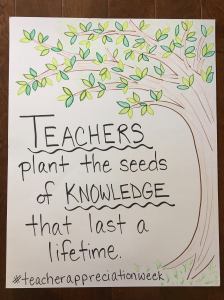 TEACHERS
plant the seeds
of KNOWLEDGE
that last a
lifetime.
#teacherappreciationweek